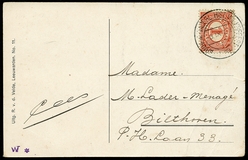 Uitg. R. v. d. Velde, Leeuwarden. No. 11.
Madame
M. Lader-Menagé
Bilthoven.
P. H. Laan 33.
Cees
W *